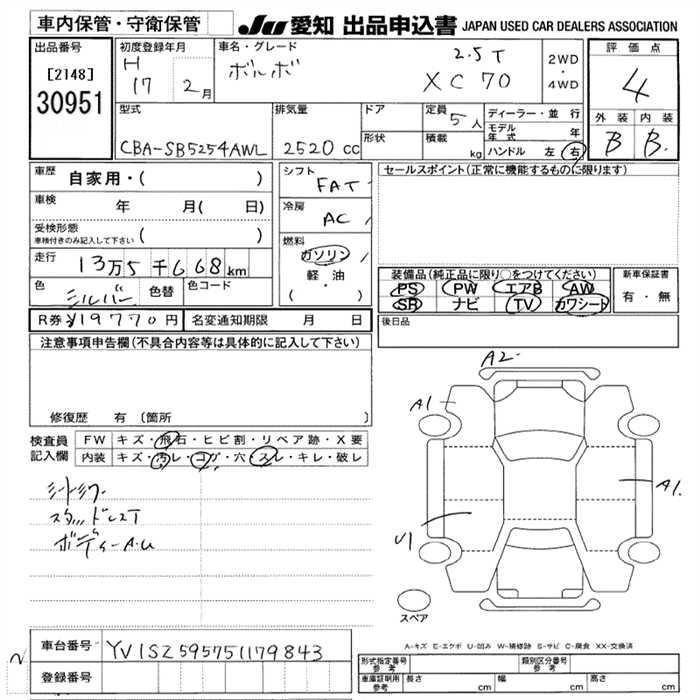 車内保管・守衛保管
JU 愛知 出品申込書 JAPAN USED CAR DEALERS ASSOCIATION
出品番号
[2148]
30951
初度登録年月
H
17 2月
車名・グレード
ボルボ
2.5T
XC70
2WD
・
4WD
評価点
4
外装 内装
B B
型式
CBA-SB5254AWL
排気量
2520 cc
ドア
形状
定員
5人
積載
kg
ディーラー・並行
モデル年式 年
ハンドル 左 右
車歴
自家用・( )
車検
年 月( 日)
受検形態
車検付きのみ記入して下さい ( )
走行
13万5千668km
色
シルバー
色替
色コード
シフト
FAT
冷房
AC
燃料
ガソリン
軽・油
( )
セールスポイント(正常に機能するものに限ります)
装備品(純正品に限り〇をつけてください)
PS PW エアB AW
SR ナビ TV カワシート
新車保証書
有・無
後日品
R券 ¥19770円
名変通知期限 月 日
注意事項申告欄(不具合内容等は具体的に記入して下さい)
修復歴 有 (箇所 )
検査員
記入欄
FW キズ・飛石・ヒビ割・リペア跡・X要
内装 キズ・汚レ・コゲ・穴・スレ・キレ・破レ
シートシワ
スタッドレスT
ボディーA.U
A2
A1
A1.
U1
スペア
A-キズ E-エクボ U-凹み W-補修跡 S-サビ C-腐食 XX-交換済
車台番号 YV1SZ595751179843
登録番号
形式指定番号
参考
類別区分番号
参考
車庫証明用
参考
長さ cm 幅 cm 高さ cm